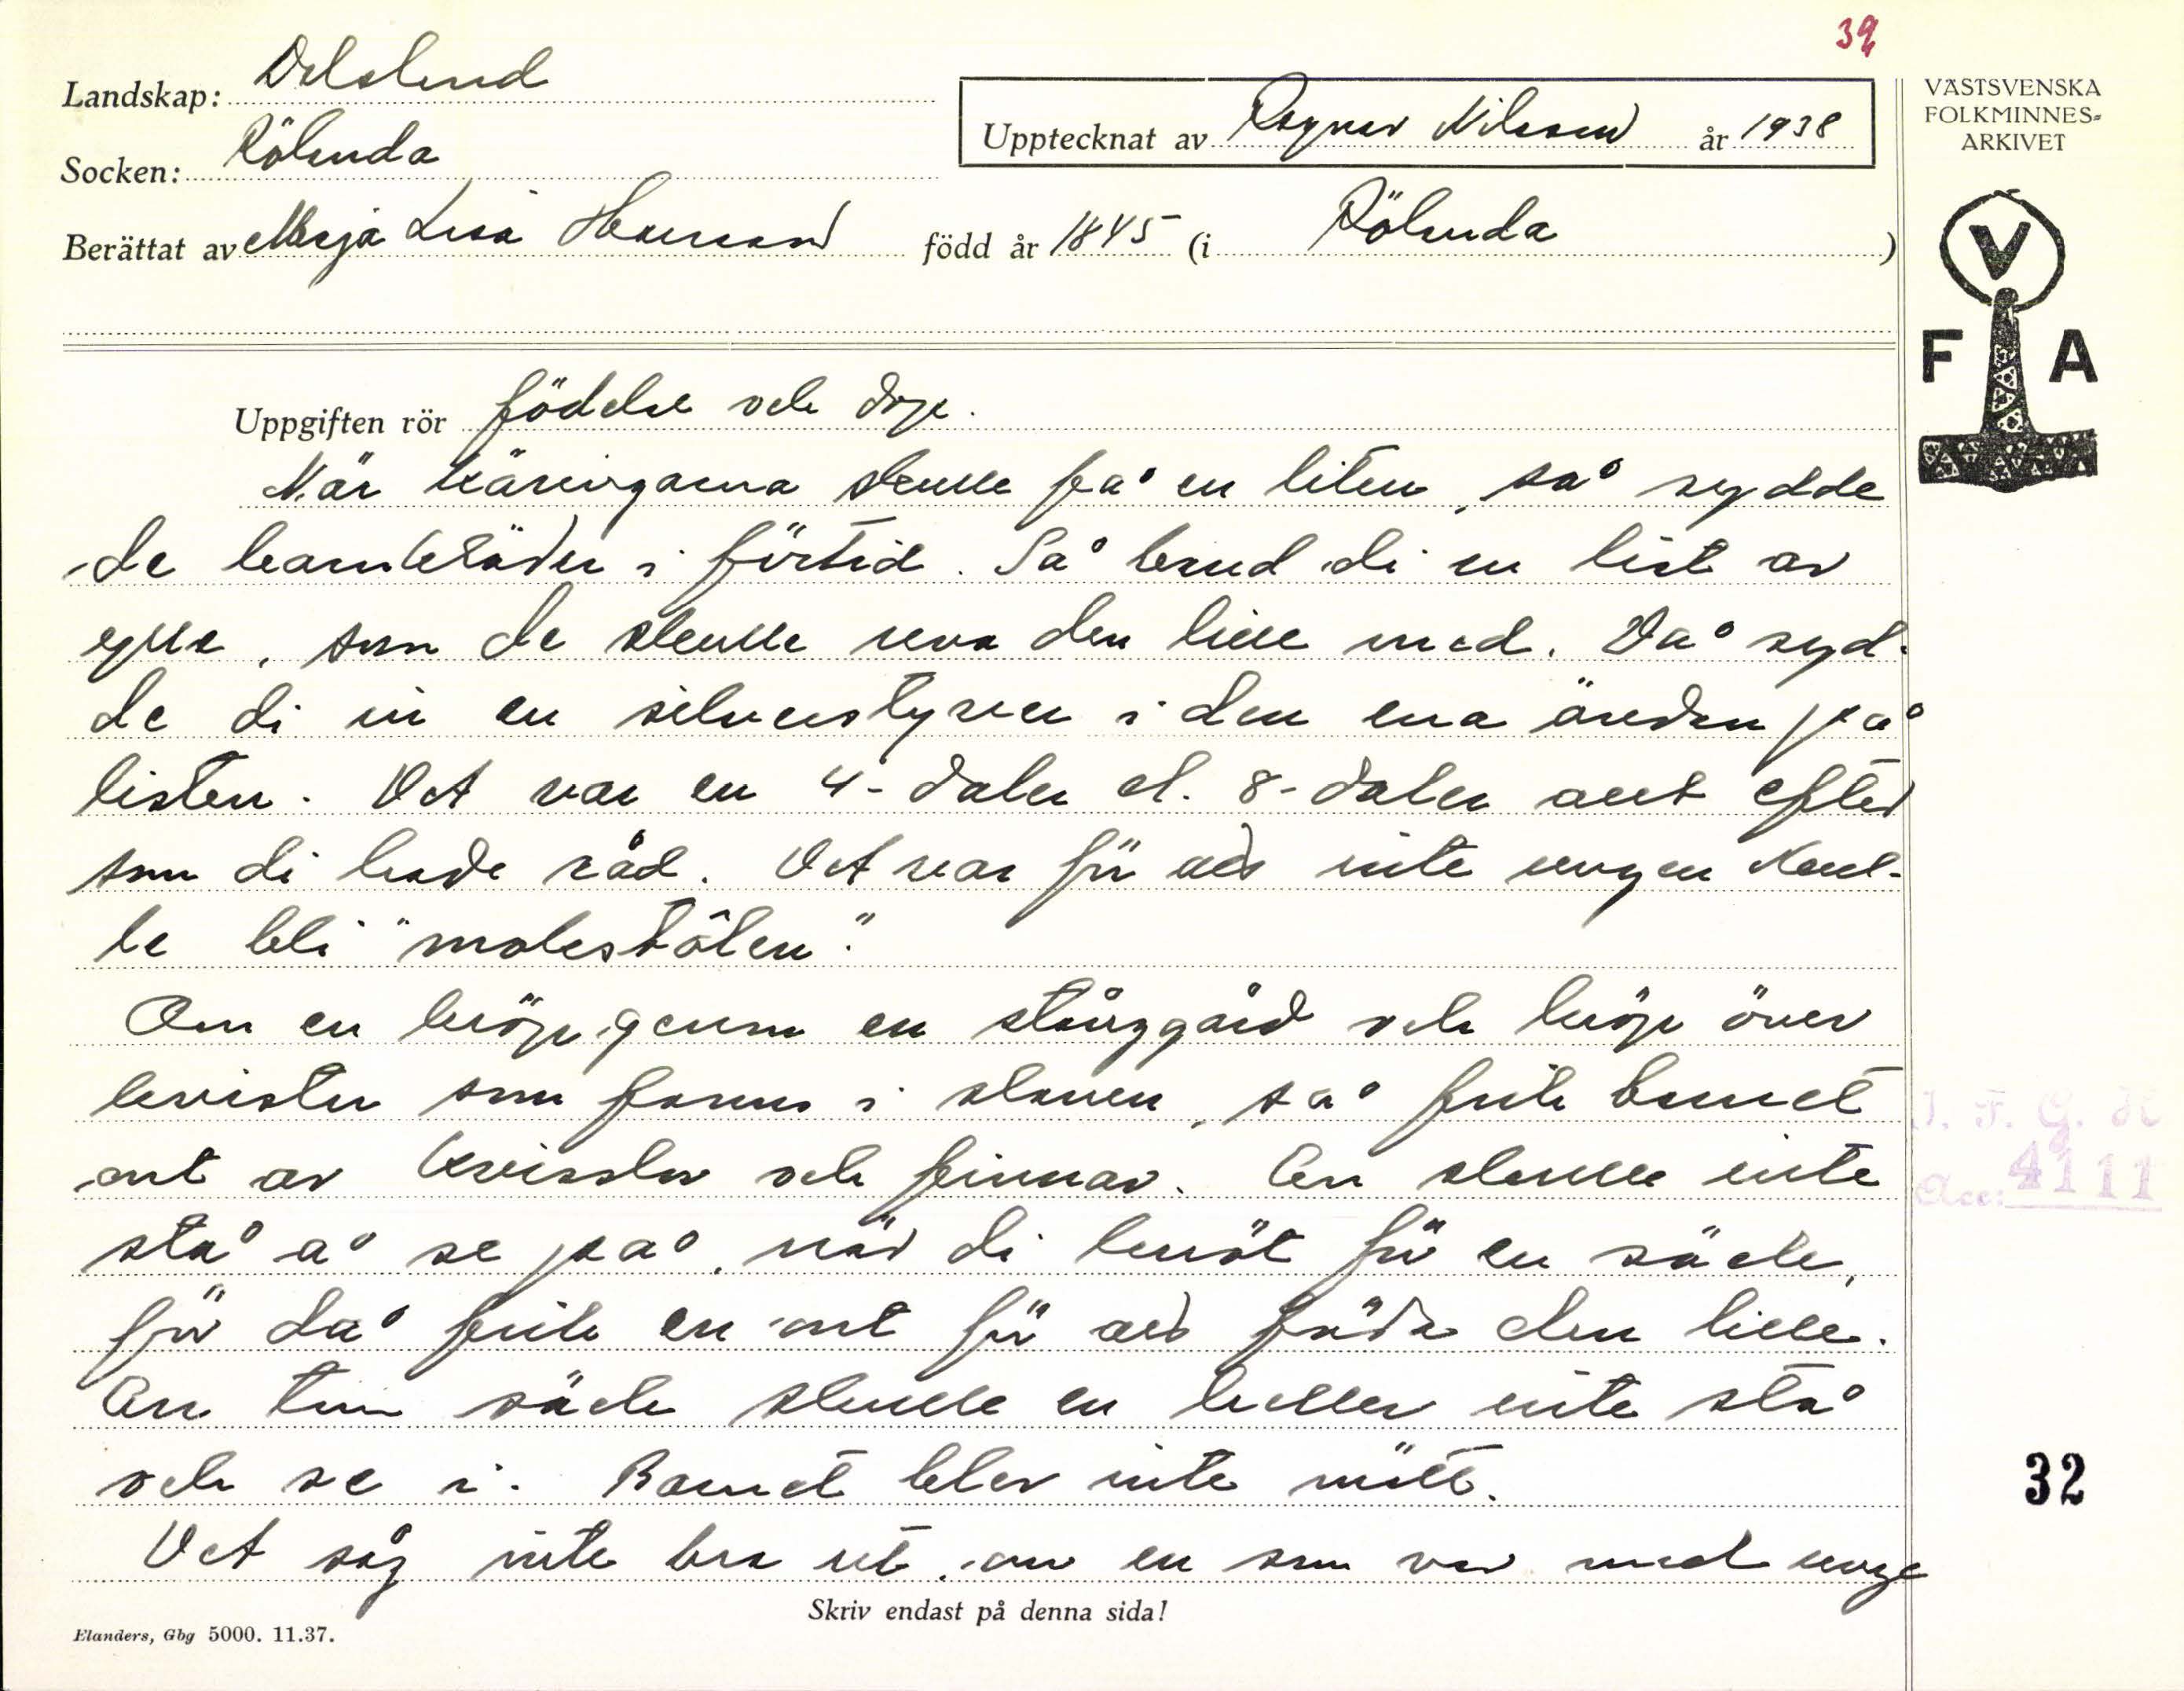 32
Landskap: Dalsland
Socken: Rölanda
Upptecknat av Ragnar Nilsson år 1938
Berättat av Maja Lisa Hansson född år 1845 (i Rölanda)
VÄSTSVENSKA
FOLKMINNES-
ARKIVET
V
F A
Uppgiften rör födelse och dop.
När käringarna skulle få en liten, så sydde
de barnkläder i förtid. Så band di en list av
ylle, som de skulle reva den lille med. Då syd-
de di in en silverstyver i den ena ändan på
listen. Det var en 4-daler el. 8-daler allt efter
som di hade råd. Det var för att inte ungen skul-
le bli "molestôlen".
Om en kröp genom en stånggård och kröp över
kvister som fanns i skouen, så fick barnet
ont av kvisslor och finnar. En skulle inte
stå å se på, när di knöt för en säck,
för då fick en ont för att föda den lille.
En tom säck skulle en heller inte stå
och se i. Barnet blev inte mätt.
Det såg inte bra ut, om en som var med unge
I. F. G. H
Acc: 4111
32
Skriv endast på denna sida!
Elanders, Gbg 5000. 11.37.